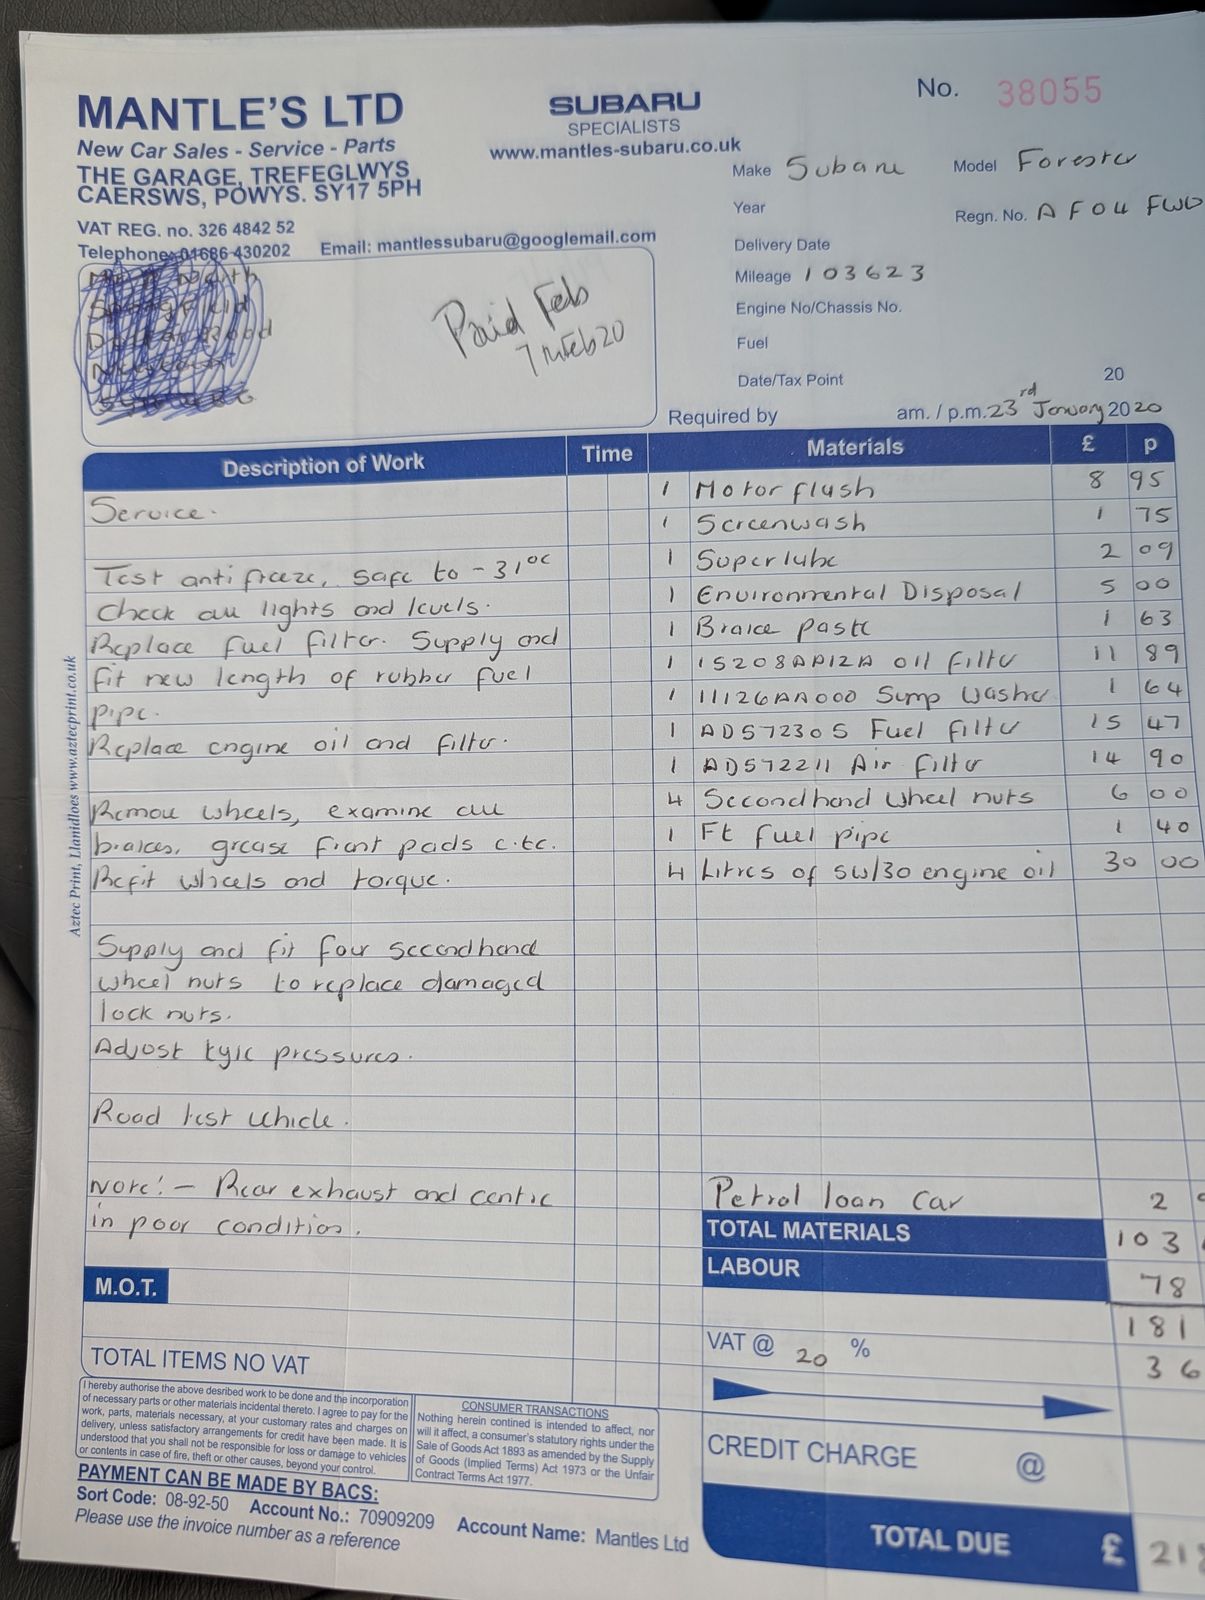 MANTLE'S LTD
New Car Sales - Service - Parts
THE GARAGE, TREFEGLWYS
CAERSWS, POWYS. SY17 5PH
VAT REG. no. 326 4842 52
Telephone: 01686 430202 Email: mantlessubaru@googlemail.com
SUBARU
SPECIALISTS
www.mantles-subaru.co.uk
No. 38055
Make Subaru Model Forester
Year Regn. No. AF04 FWD
Delivery Date
Mileage 103623
Engine No/Chassis No.
Fuel
Date/Tax Point 20
Required by am. / p.m. 23rd January 2020
Paid Feb
7th Feb 20
Description of Work Time Materials £ p
1 Motor flush 8 95
Service.
1 Screenwash 1 75
1 Superlube 2 09
Test antifreeze, safe to -31°c
1 Environmental Disposal 5 00
Check all lights and levels.
1 Brake paste 1 63
Replace fuel filter. Supply and
1 15208AA12A oil filter 11 89
fit new length of rubber fuel
1 11126AA000 Sump Washer 1 64
pipe.
1 ADS72305 Fuel filter 15 47
Replace engine oil and filter.
1 ADS72211 Air filter 14 90
4 Secondhand wheel nuts 6 00
Remove wheels, examine all
1 Ft fuel pipe 1 40
brakes, grease front pads e.tc.
4 Litres of 5w/30 engine oil 30 00
Refit wheels and torque.
Supply and fit four secondhand
wheel nuts to replace damaged
lock nuts.
Adjust tyre pressures.
Road test vehicle.
Note! - Rear exhaust and centre
in poor condition.
Petrol loan car 2
TOTAL MATERIALS 103
LABOUR 78
181
M.O.T.
VAT @ 20 % 36
TOTAL ITEMS NO VAT
CREDIT CHARGE @
TOTAL DUE £ 218
I hereby authorise the above desribed work to be done and the incorporation
of necessary parts or other materials incidental thereto. I agree to pay for the
work, parts, materials necessary, at your customary rates and charges on
delivery, unless satisfactory arrangements for credit have been made. It is
understood that you shall not be responsible for loss or damage to vehicles
or contents in case of fire, theft or other causes, beyond your control.
CONSUMER TRANSACTIONS
Nothing herein contined is intended to affect, nor
will it affect, a consumer's statutory rights under the
Sale of Goods Act 1893 as amended by the Supply
of Goods (Implied Terms) Act 1973 or the Unfair
Contract Terms Act 1977.
PAYMENT CAN BE MADE BY BACS:
Sort Code: 08-92-50 Account No.: 70909209 Account Name: Mantles Ltd
Please use the invoice number as a reference
Aztec Print, Llanidloes www.aztecprint.co.uk